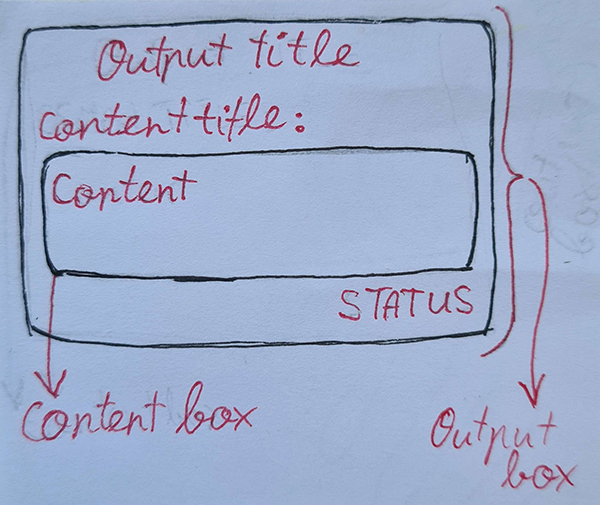 Output title
Content title:
Content
STATUS
Content box
Output
box